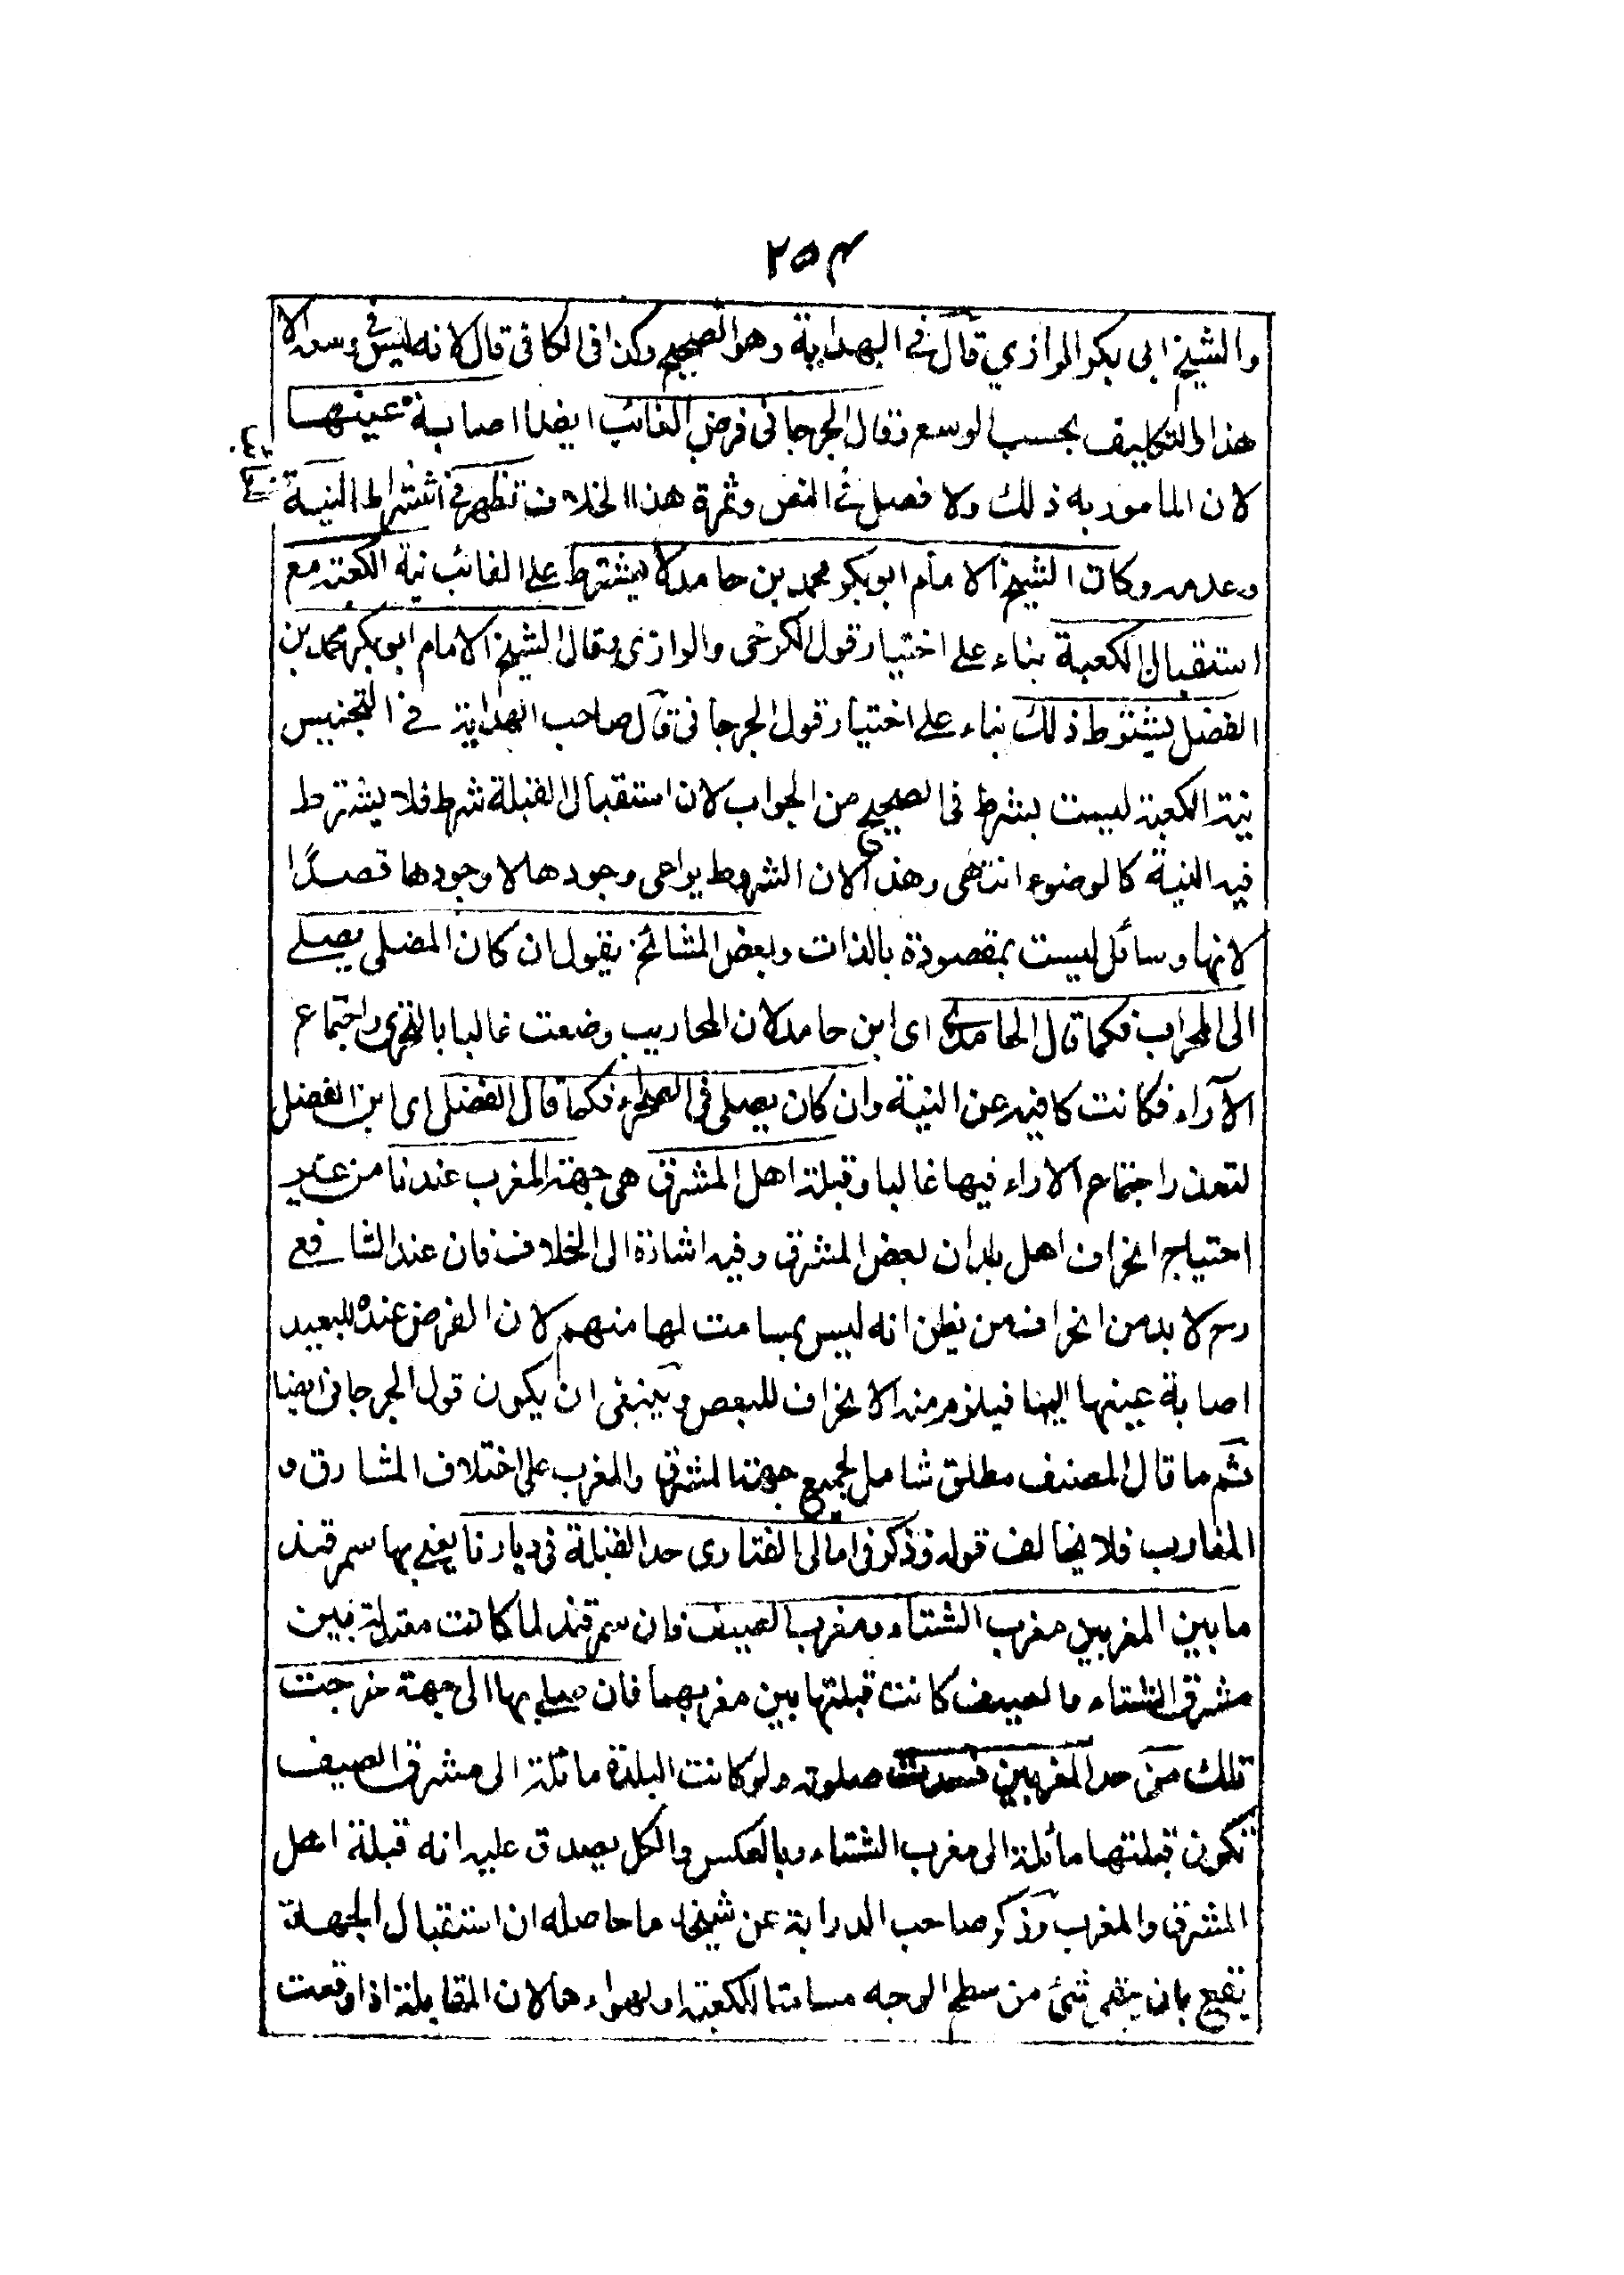 ٢٥٣
والشيخ ابى بكر الرازي قال في الهداية وهو الصحيح وكذا فى الكافى قال لانه ليس فى وسعه الا
هذا والتكليف بحسب الوسع وقال الجرجانى فرض الغائب ايضا اصابة عينها
لان المامور به ذلك ولا فصل فى النص وثمرة هذا الخلاف تظهر فى اشتراط النية
وعدمه وكان الشيخ الامام ابو بكر محمد بن حامد لا يشترط على الغائب نية الكعبة مع
استقبال الكعبة بناء على اختيار قول الكرخى والرازى وقال الشيخ الامام ابو بكر محمد بن
الفضل يشترط ذلك بناء على اختيار قول الجرجانى قال صاحب الهداية في التجنيس
نية الكعبة ليست بشرط فى الصحيح من الجواب لان استقبال القبلة شرط فلا يشترط
فيه النية كالوضوء انتهى وهذا لان الشروط يراعى وجودها لا وجودها قصدًا
لانها وسائل ليست بمقصودة بالذات وبعض المشائخ يقول ان كان المصلى يصلے
الى المحراب فكما قال الحامدى اى ابن حامد لان المحاريب وضعت غالبا بالتحرى واجتماع
الآراء فكانت كافيه عن النية وان كان يصلى فى الصحراء فكما قال الفضلى اى ابن الفضل
لتعذر اجتماع الاراء فيها غالبا وقبلة اهل المشرق هى جهة المغرب عندنا من غير
احتياج انحراف اهل بلدان بعض المشرق وفيه اشارة الى الخلاف فان عند الشافعے
رح لا بد من انحراف من يظن انه ليس بمسامت لها منهم لان الفرض عنده للبعيد
اصابة عينها ايضا فيلزم منه الانحراف للبعض وينبغى ان يكون قول الجرجانى ايضا
ثم ما قال المصنف مطلق شامل لجميع جهة المشرق والمغرب على اختلاف المشارق و
المغارب فلا يخالف قوله وذكر فى امالى الفتاوى حد القبلة فى ديارنا يعنى بها سمرقند
ما بين المغربين مغرب الشتاء ومغرب الصيف فان سمرقند لما كانت معتدلة بين
مشرق الشتاء والصيف كانت قبلتها بين مغربهما فان صلى بها الى جهة خرجت
تلك من حد المغربين فسدت صلوته ولو كانت البلدة مائلة الى مشرق الصيف
تكون قبلتها مائلة الى مغرب الشتاء وبالعكس والكل يصدق عليه انه قبلة اهل
المشرق والمغرب وذكر صاحب الدراية عن شيخه ما حاصله ان استقبال الجهة
يقع بان يبقى شئ من سطح الوجه مسامتا للكعبة او لهواءها لان المقابلة اذا وقعت